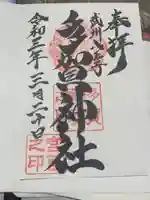 奉拝
武州八王子
多賀神社
令和三年三月二十日
宮司之印